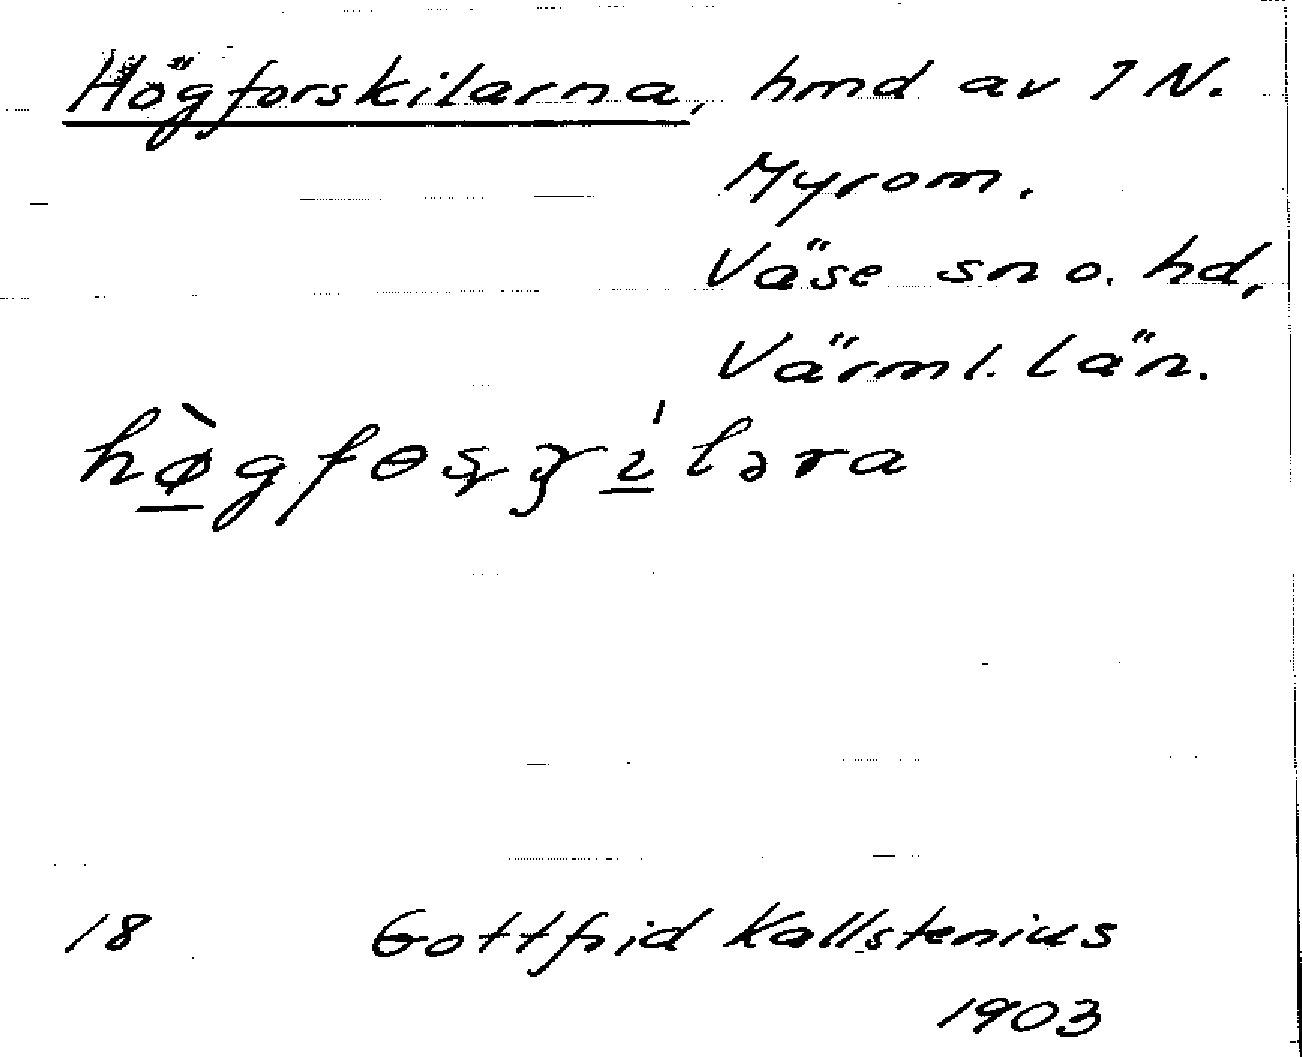 Högforskilarna, hmd av I N.
Myrom.
Väse sn o. hd,
Värml. län.
18 Gottfrid Kallstenius
1903